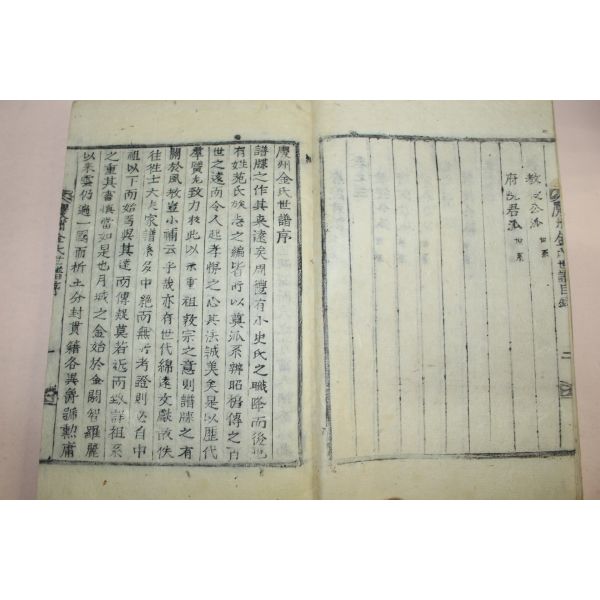 慶州金氏世譜目錄
二
教官公派 世系
府院君派 世系
慶州金氏世譜序
譜牒之作其來遠矣周禮有小史氏之職隆而後也
有姓苑氏族志之編皆所以奠派系辨昭穆傳之百
世之遠而令人起孝悌之心其法誠美矣是以歷代
羣賢尤致力於此以示重祖敦宗之意則譜牒之有
關於風教豈小補云乎哉亦有世代綿遠文獻故佚
往往士大夫家譜系多中絶而無所考證則必自中
祖以下而始焉與其遠而傳疑莫若近而致詳祖系
之重其書慎當如是也月城之金始於金閼智羅麗
以來雲仍遍一國而析土分封貫籍各異爵號勲庸
慶州金氏世譜序